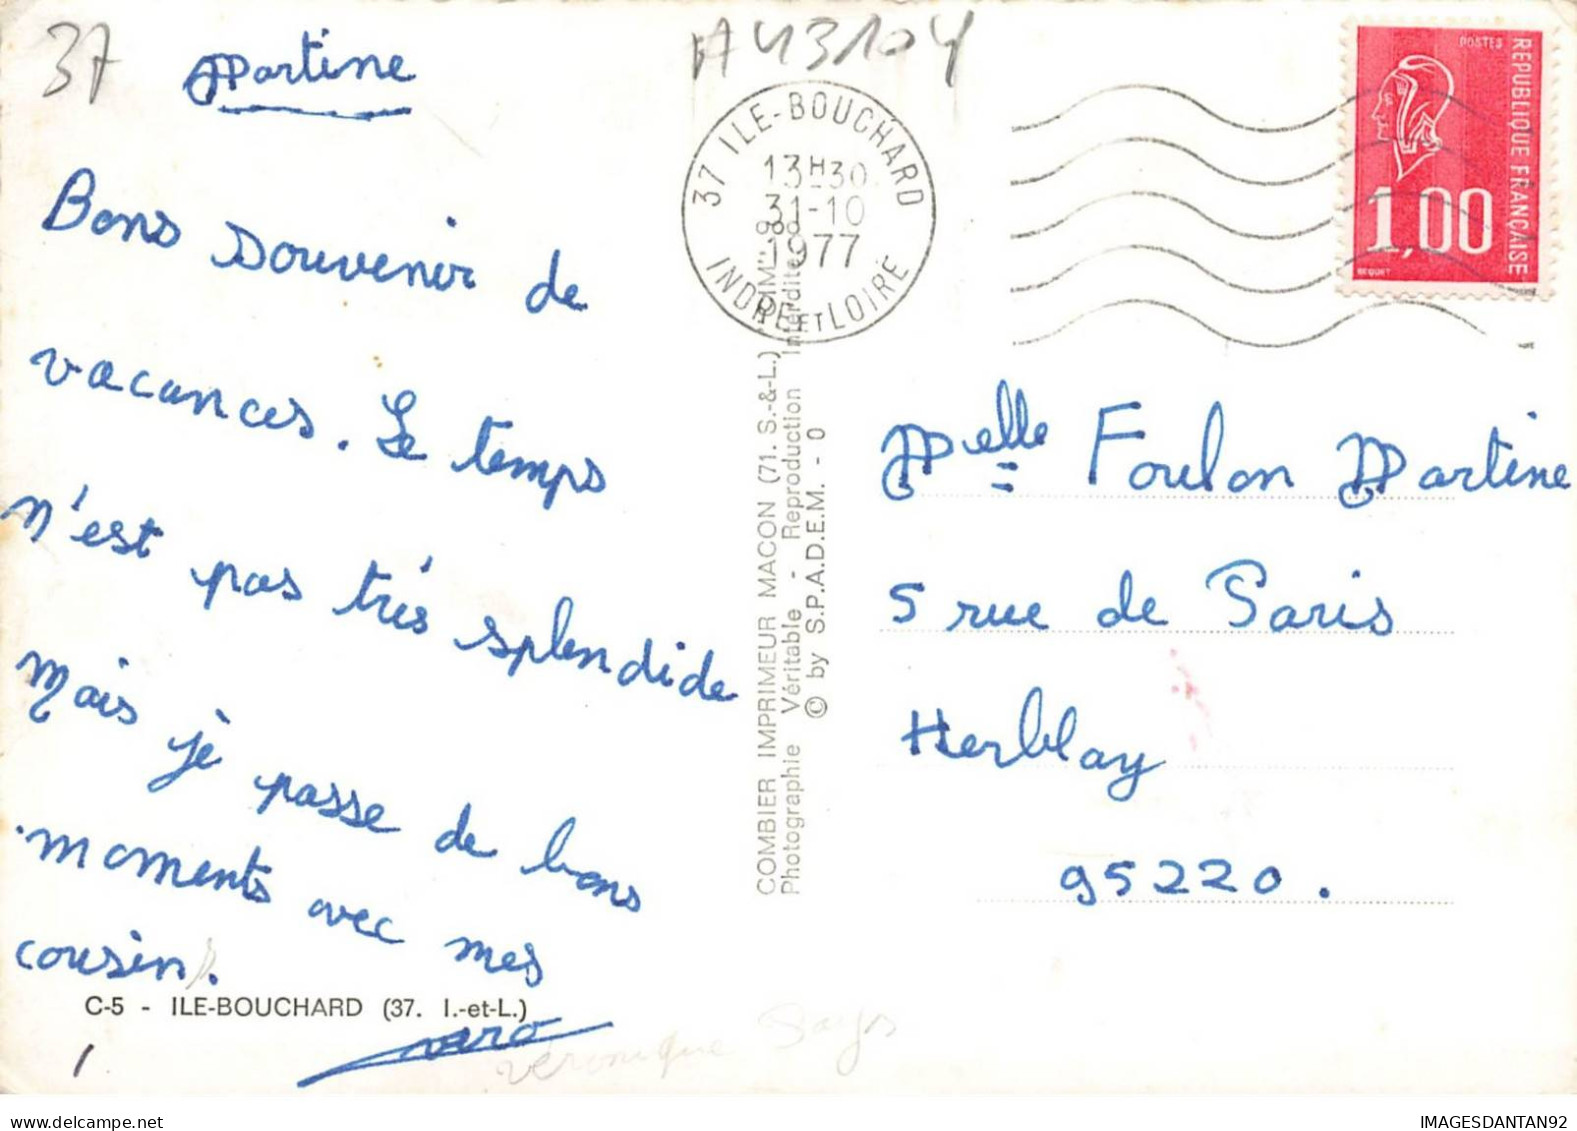 37
Martine
A43104
37 ILE-BOUCHARD
13H30
31-10
1977
INDRE ET LOIRE
POSTES
REPUBLIQUE FRANÇAISE
1,00
BEQUET
Bons souvenir de
vacances. Le temps
n'est pas trés splendide
mais je passe de bons
moments avec mes
cousin.
vero
C-5 - ILE-BOUCHARD (37. I.-et-L.)
COMBIER IMPRIMEUR MACON (71. S.-&-L.)
Photographie Véritable - Reproduction Interdite
© by S.P.A.D.E.M. - 0
Melle Foulon Martine
5 rue de Paris
Herblay
95220.
véronique
IMAGESDANTAN92